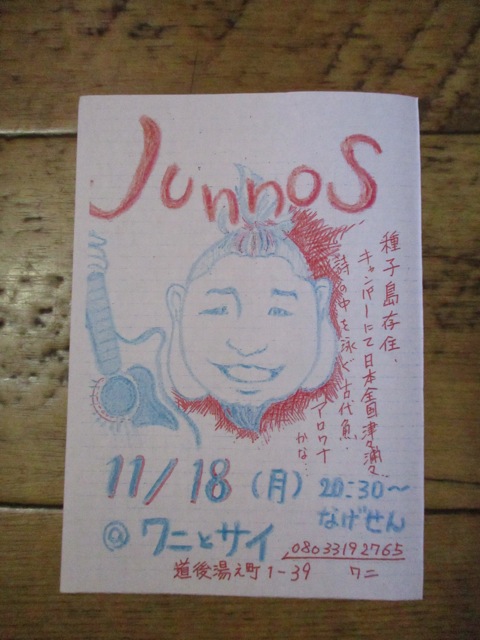 Junnos
種子島存住.
キャンパーにて日本全国津々浦々
詩の中を泳ぐ古代魚.
アロワナ
かな…
11/18(月) 20:30〜
なげせん
@ワニとサイ
08033192765
道後湯之町1-39 ワニ